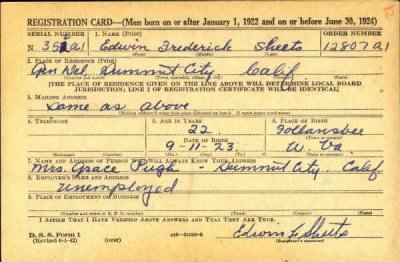 REGISTRATION CARD—(Men born on or after January 1, 1922 and on or before June 30, 1924)
SERIAL NUMBER 1. NAME (Print) ORDER NUMBER
N 351a1 Edwin Frederick Sheets 12807a1
2. PLACE OF RESIDENCE (Print)
Gen Del Summit City Calif
[THE PLACE OF RESIDENCE GIVEN ON THE LINE ABOVE WILL DETERMINE LOCAL BOARD
JURISDICTION; LINE 2 OF REGISTRATION CERTIFICATE WILL BE IDENTICAL]
3. MAILING ADDRESS
Same as above
4. TELEPHONE 5. AGE IN YEARS 6. PLACE OF BIRTH
22 Follansbee
DATE OF BIRTH
9-11-23 W. Va.
(Exchange) (Number) (Mo.) (Day) (Yr.) (State or country)
7. NAME AND ADDRESS OF PERSON WHO WILL ALWAYS KNOW YOUR ADDRESS
Mrs. Grace Pugh - Summit City - Calif
8. EMPLOYER'S NAME AND ADDRESS
Unemployed
9. PLACE OF EMPLOYMENT OR BUSINESS
(Number and street or R. F. D. number) (Town) (County) (State)
I AFFIRM THAT I HAVE VERIFIED ABOVE ANSWERS AND THAT THEY ARE TRUE.
D. S. S. Form 1
(Revised 6-1-42) (over) Edwin F Sheets
(Registrant's signature)